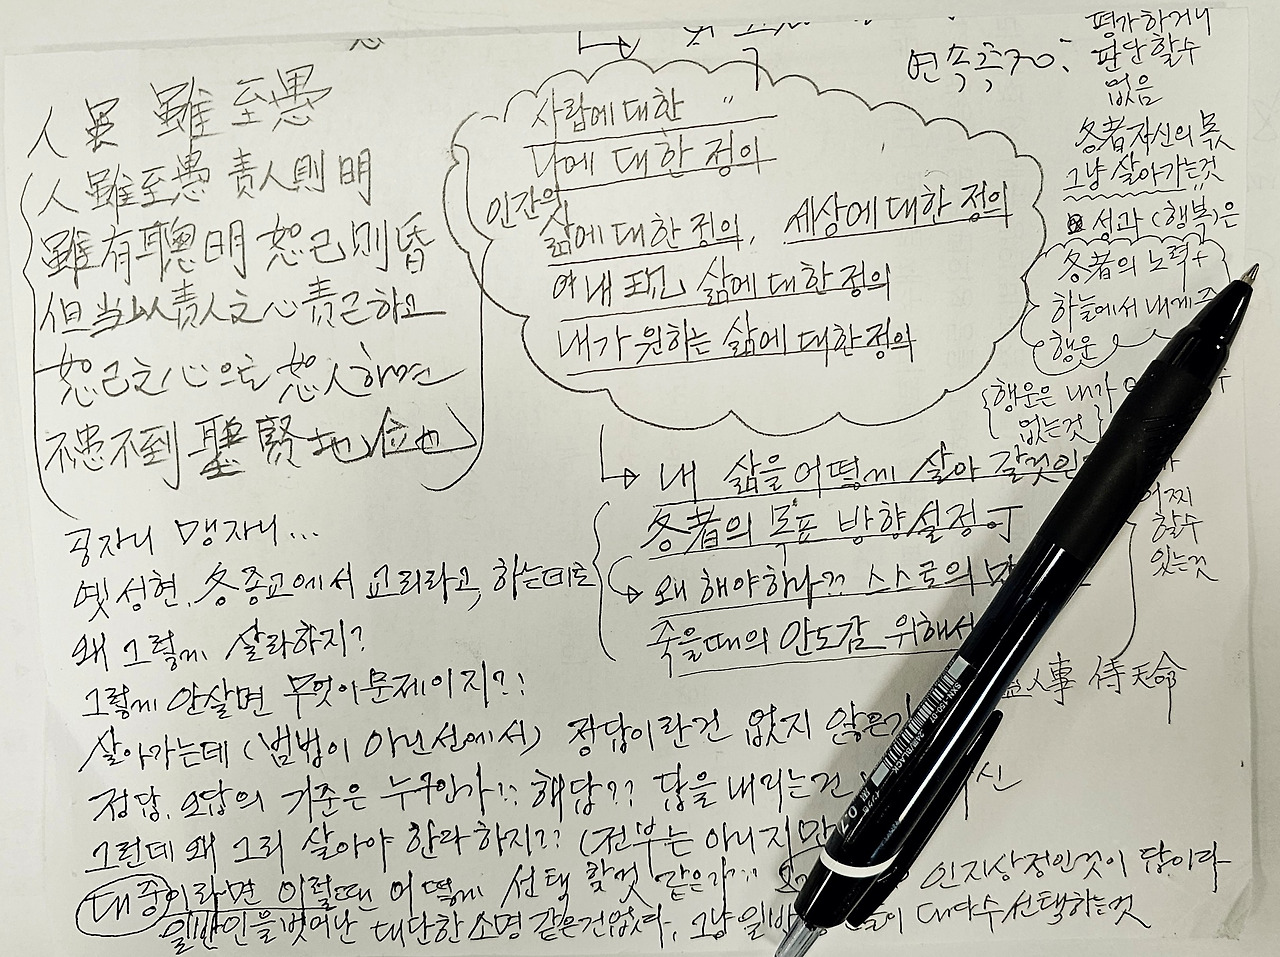 人 虽 雖 至愚
人 雖至愚 責人則明
雖有聰明 恕己則昏
但当以責人之心責己하고
恕己之心으로 恕人하면
不患不到 聖賢地位也
공자니 맹자니...
옛 성현, 各종교에서 교리라고, 하는데로
왜 그렇게 살라하지?
그렇게 안살면 무엇이 문제이지?!
살아가는데 (범법이 아닌선에서) 정답이란건 없지 않은
정답, 오답의 기준은 누구인가!! 해답?? 답을 내리는건
그런데 왜 그리 살아야 한다 하지?? (전부는 아니지만
대중이라면 이럴때 어떻게 선택 할것 같은가?? 인지상정인것이 답이다
일반인을벗어난 대단한소명 같은건없다, 그냥 일반 들이 대다수선택하는것
사람에 대한 "
나에 대한 정의
인간의
삶에 대한 정의, 세상에 대한 정의
내 현 삶에 대한 정의
내가 원하는 삶에 대한정의
내 삶을 어떻게 살아 갈것인
各者의 목표 방향설정
왜 해야하나?? 스스로의
죽을때의 안도감 위해서
연속
평가하거나
판단할수
없음
各者자신의 몫
그냥 살아가는것
성과 (행복)은
各者의 노력+
하늘에서 내게 주
행운
행운은 내가
없는것
어찌
할수
있는것
人事 待天命
0.7